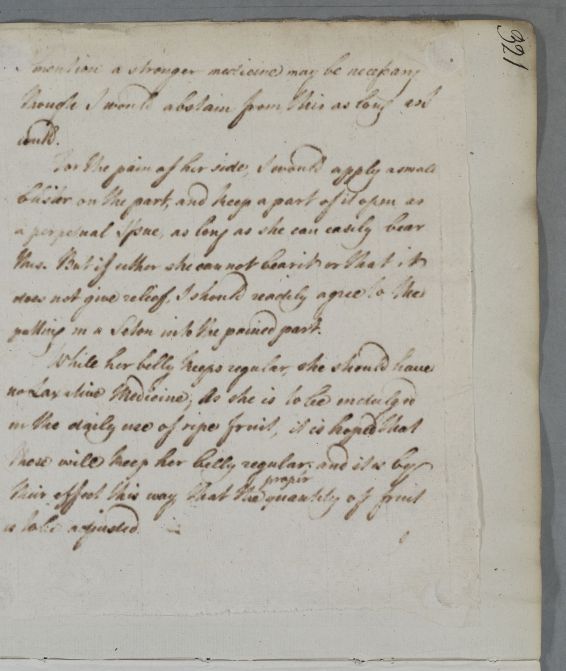 321
I mention a stronger medicine may be necessary
though I would abstain from this as long as I
could.
For the pain of her side, I would apply a small
blister on the part, and keep a part of it open as
a perpetual Issue, as long as she can easily bear
this. But if either she cannot bear it or that it
does not give relief, I should readily agree to the
putting in a Seton into the pained part.
While her belly keeps regular, she should have
no Laxative Medicine; As she is to be indulged
in the daily use of ripe fruit, it is hoped that
these will keep her belly regular, and it is by
their effect this way that the proper quantity of fruit
is to be adjusted.